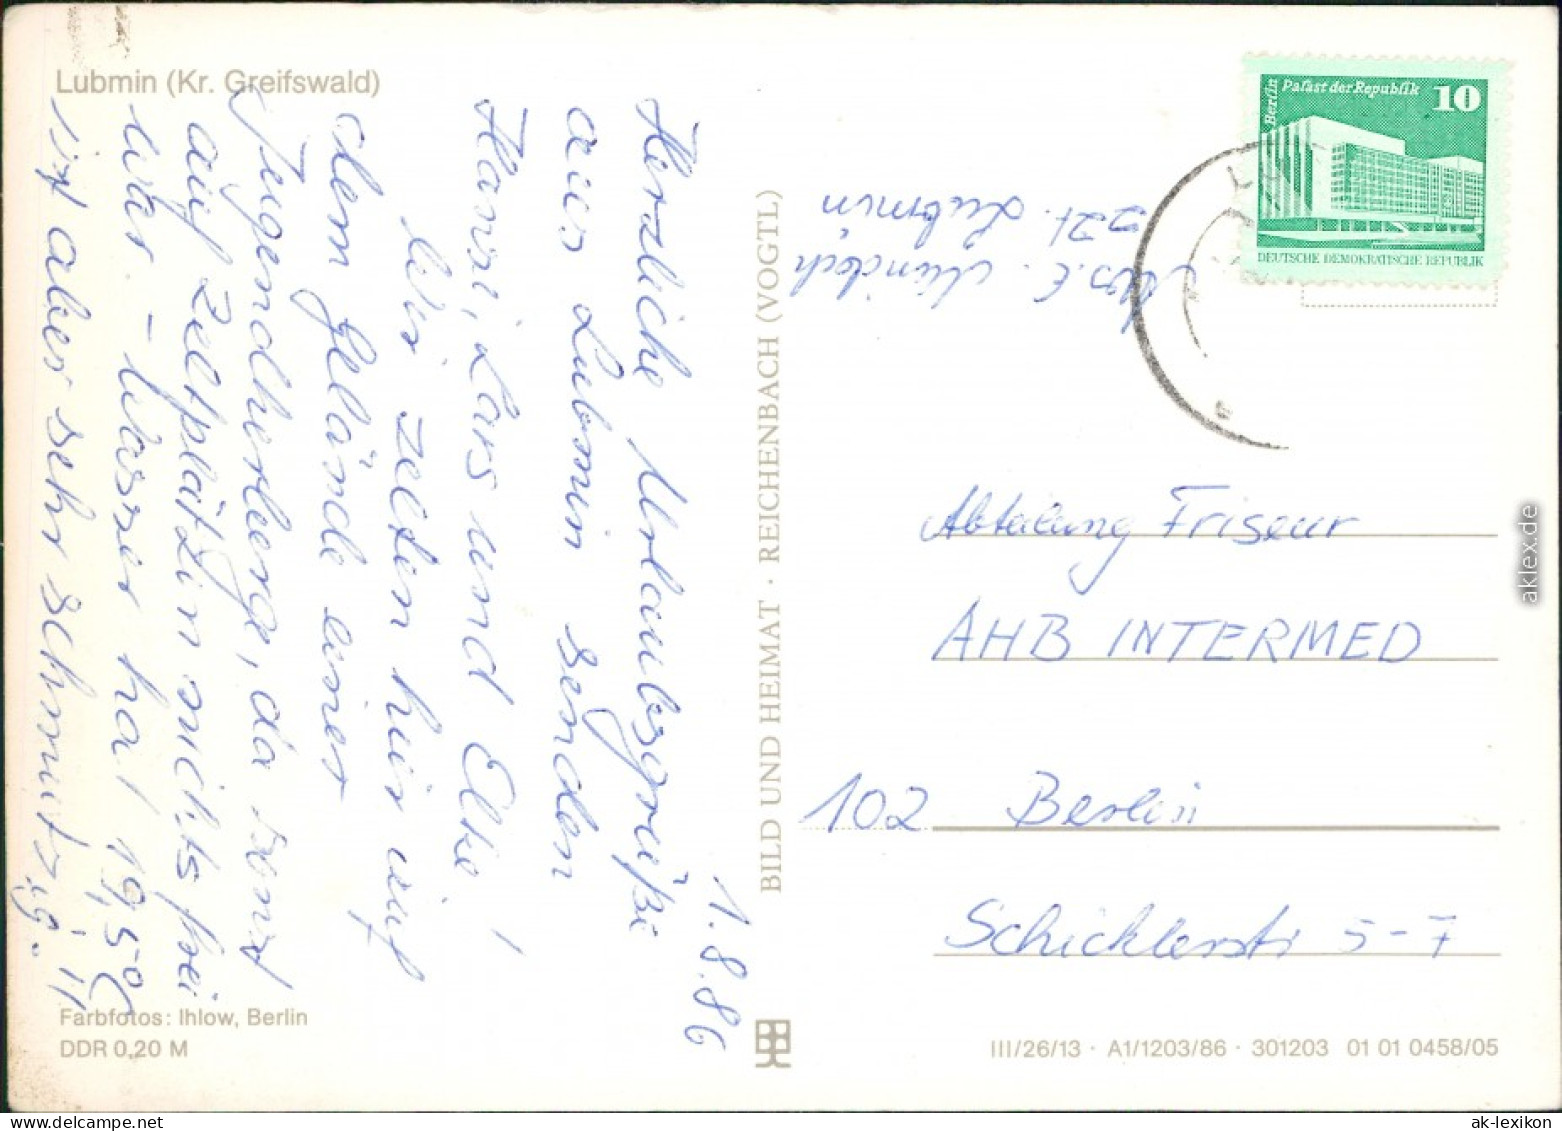 Lubmin (Kr. Greifswald)
1.8.86
Herzliche Urlaubsgrüße
aus Lubmin senden
Hansi, Lars und Elke!
Wir zelten hier auf
dem Gelände einer
Jugendherberge, da sonst
auf Zeltplätzen nichts frei
war. - Wasser hat 19,5°C
ist aber sehr schmutzig.
Farbfotos: Ihlow, Berlin
DDR 0,20 M
BILD UND HEIMAT · REICHENBACH (VOGTL)
Abs. E.
z.Zt. Lubmin
Berlin Palast der Republik 10
DEUTSCHE DEMOKRATISCHE REPUBLIK
Abteilung Friseur
AHB INTERMED
102 Berlin
Schicklerstr 5-7
III/26/13 · A1/1203/86 · 301203 01 01 0458/05
aklex.de
ak-lexikon